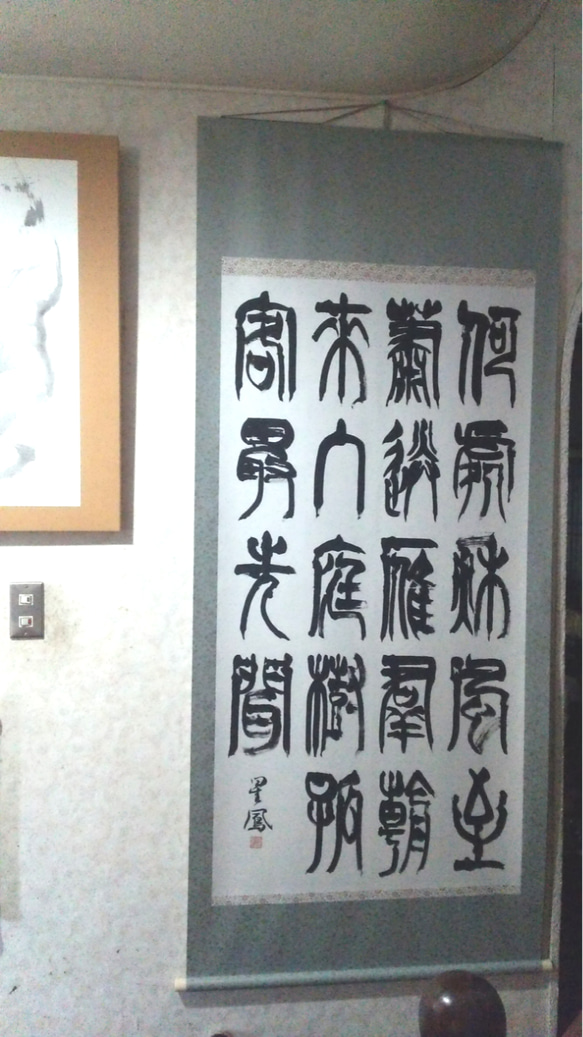 何處秋風至
蕭送雁羣朝
來入庭樹孤
客最先聞
星鳳